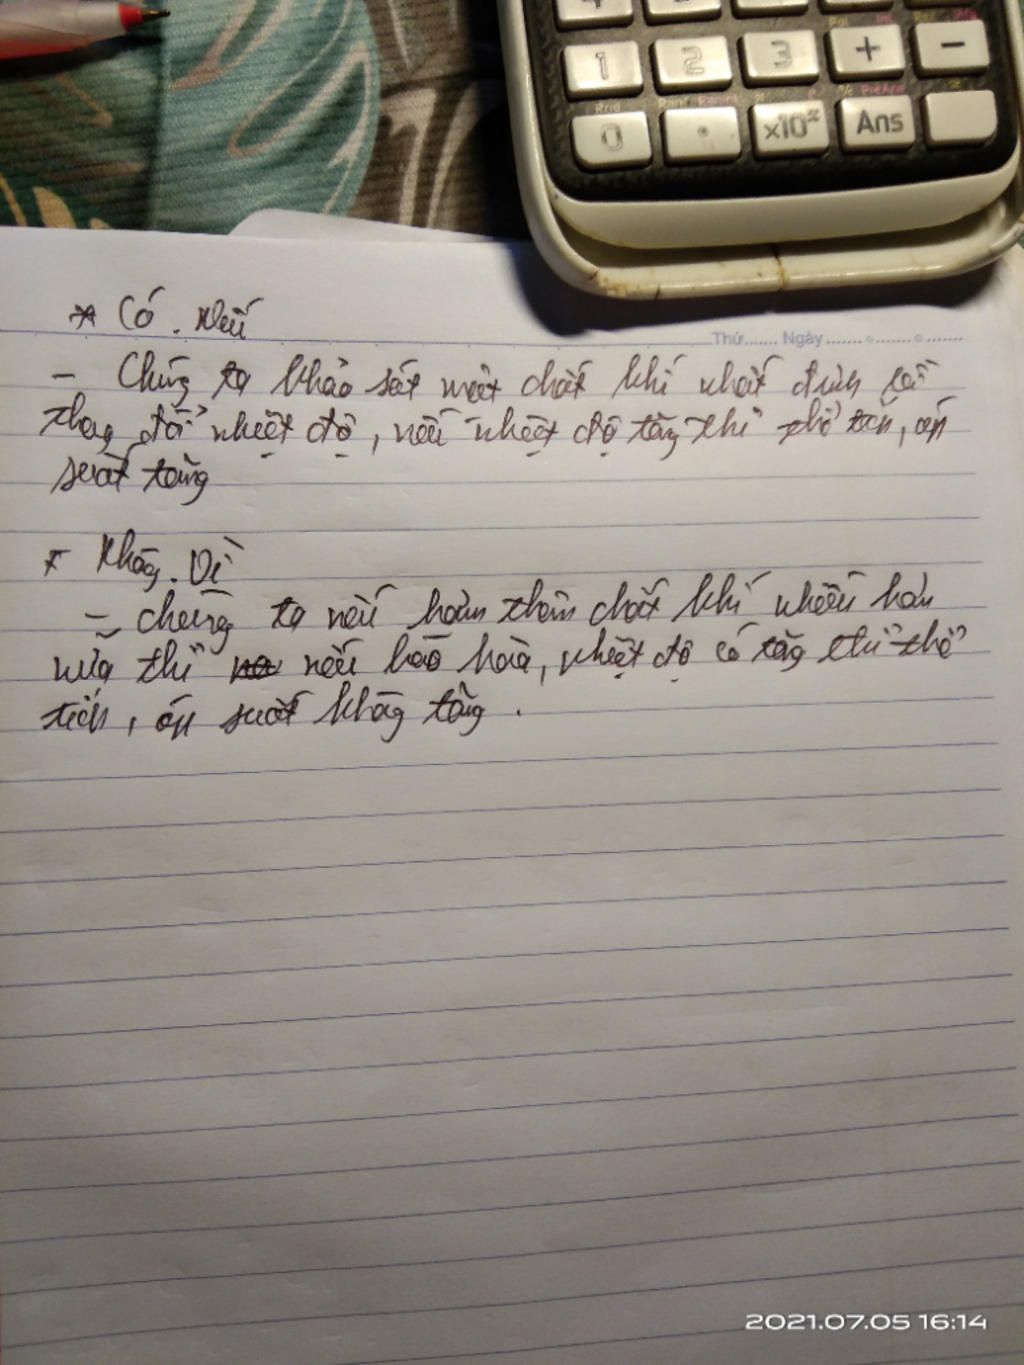 1 2 3 + −
Rnd Ran#
0 . ×10ˣ Ans
Thứ....... Ngày.......
* Có. Nếu
- Chúng ta khảo sát một chất khí nhất định rồi
thay đổi nhiệt độ, nếu nhiệt độ tăng thì thể tích, áp
suất tăng
* Không. Vì
- chúng ta nếu hoàn thêm chất khí nhiều hơn
nữa thì nếu bão hoà, nhiệt độ có tăng thì thể
tích, áp suất không tăng.
2021.07.05 16:14